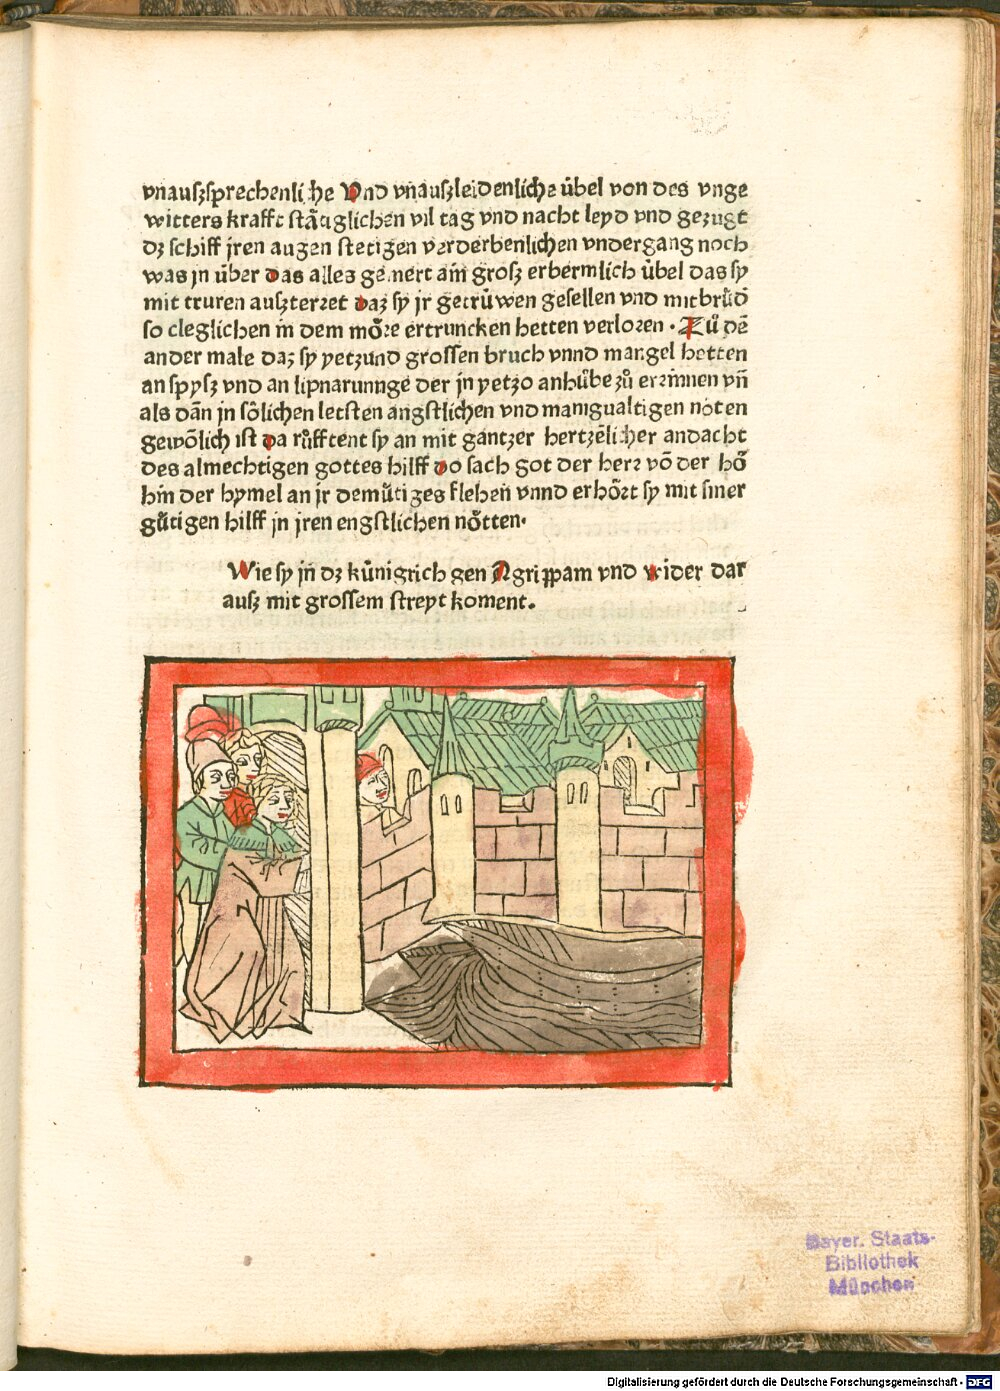 vnauszsprechenliche Vnd vnauszleidenliche übel von des vnge
witters krafft stãtiglichen vil tag vnd nacht leyd vnd gezugt
dz schiff jren augen stetigen verderbenlichen vndergang noch
was jn über das alles gemert ain grosz erbermlich übel das sy
mit truren auszterzet daz sy jr getrüwen gesellen vnd mitbrůd̄
so cleglichen in dem möre ertruncken hetten verloren · Zů dē
ander male daz sy yetzund grossen bruch vnnd mangel hetten
an spysz vnd an lipnarunnge der jn yetzo anhůbe zů erzinnen vñ
als dãn jn sölichen letsten angstlichen vnd manigualtigen nöten
gewõlich ist da růfftent sy an mit gantzer hertzẽlicher andacht
des almechtigen gottes hilff do sach got der herr võ der hö
hin der hymel an jr demütiges flehen vnnd erhört sy mit siner
gütigen hilff jn jren engstlichen nötten·
Wie sy jn dz künigrich gen Agrippam vnd wider dar
ausz mit grossem streyt koment.
Bayer. Staats-
Bibliothek
München
Digitalisierung gefördert durch die Deutsche Forschungsgemeinschaft - DFG